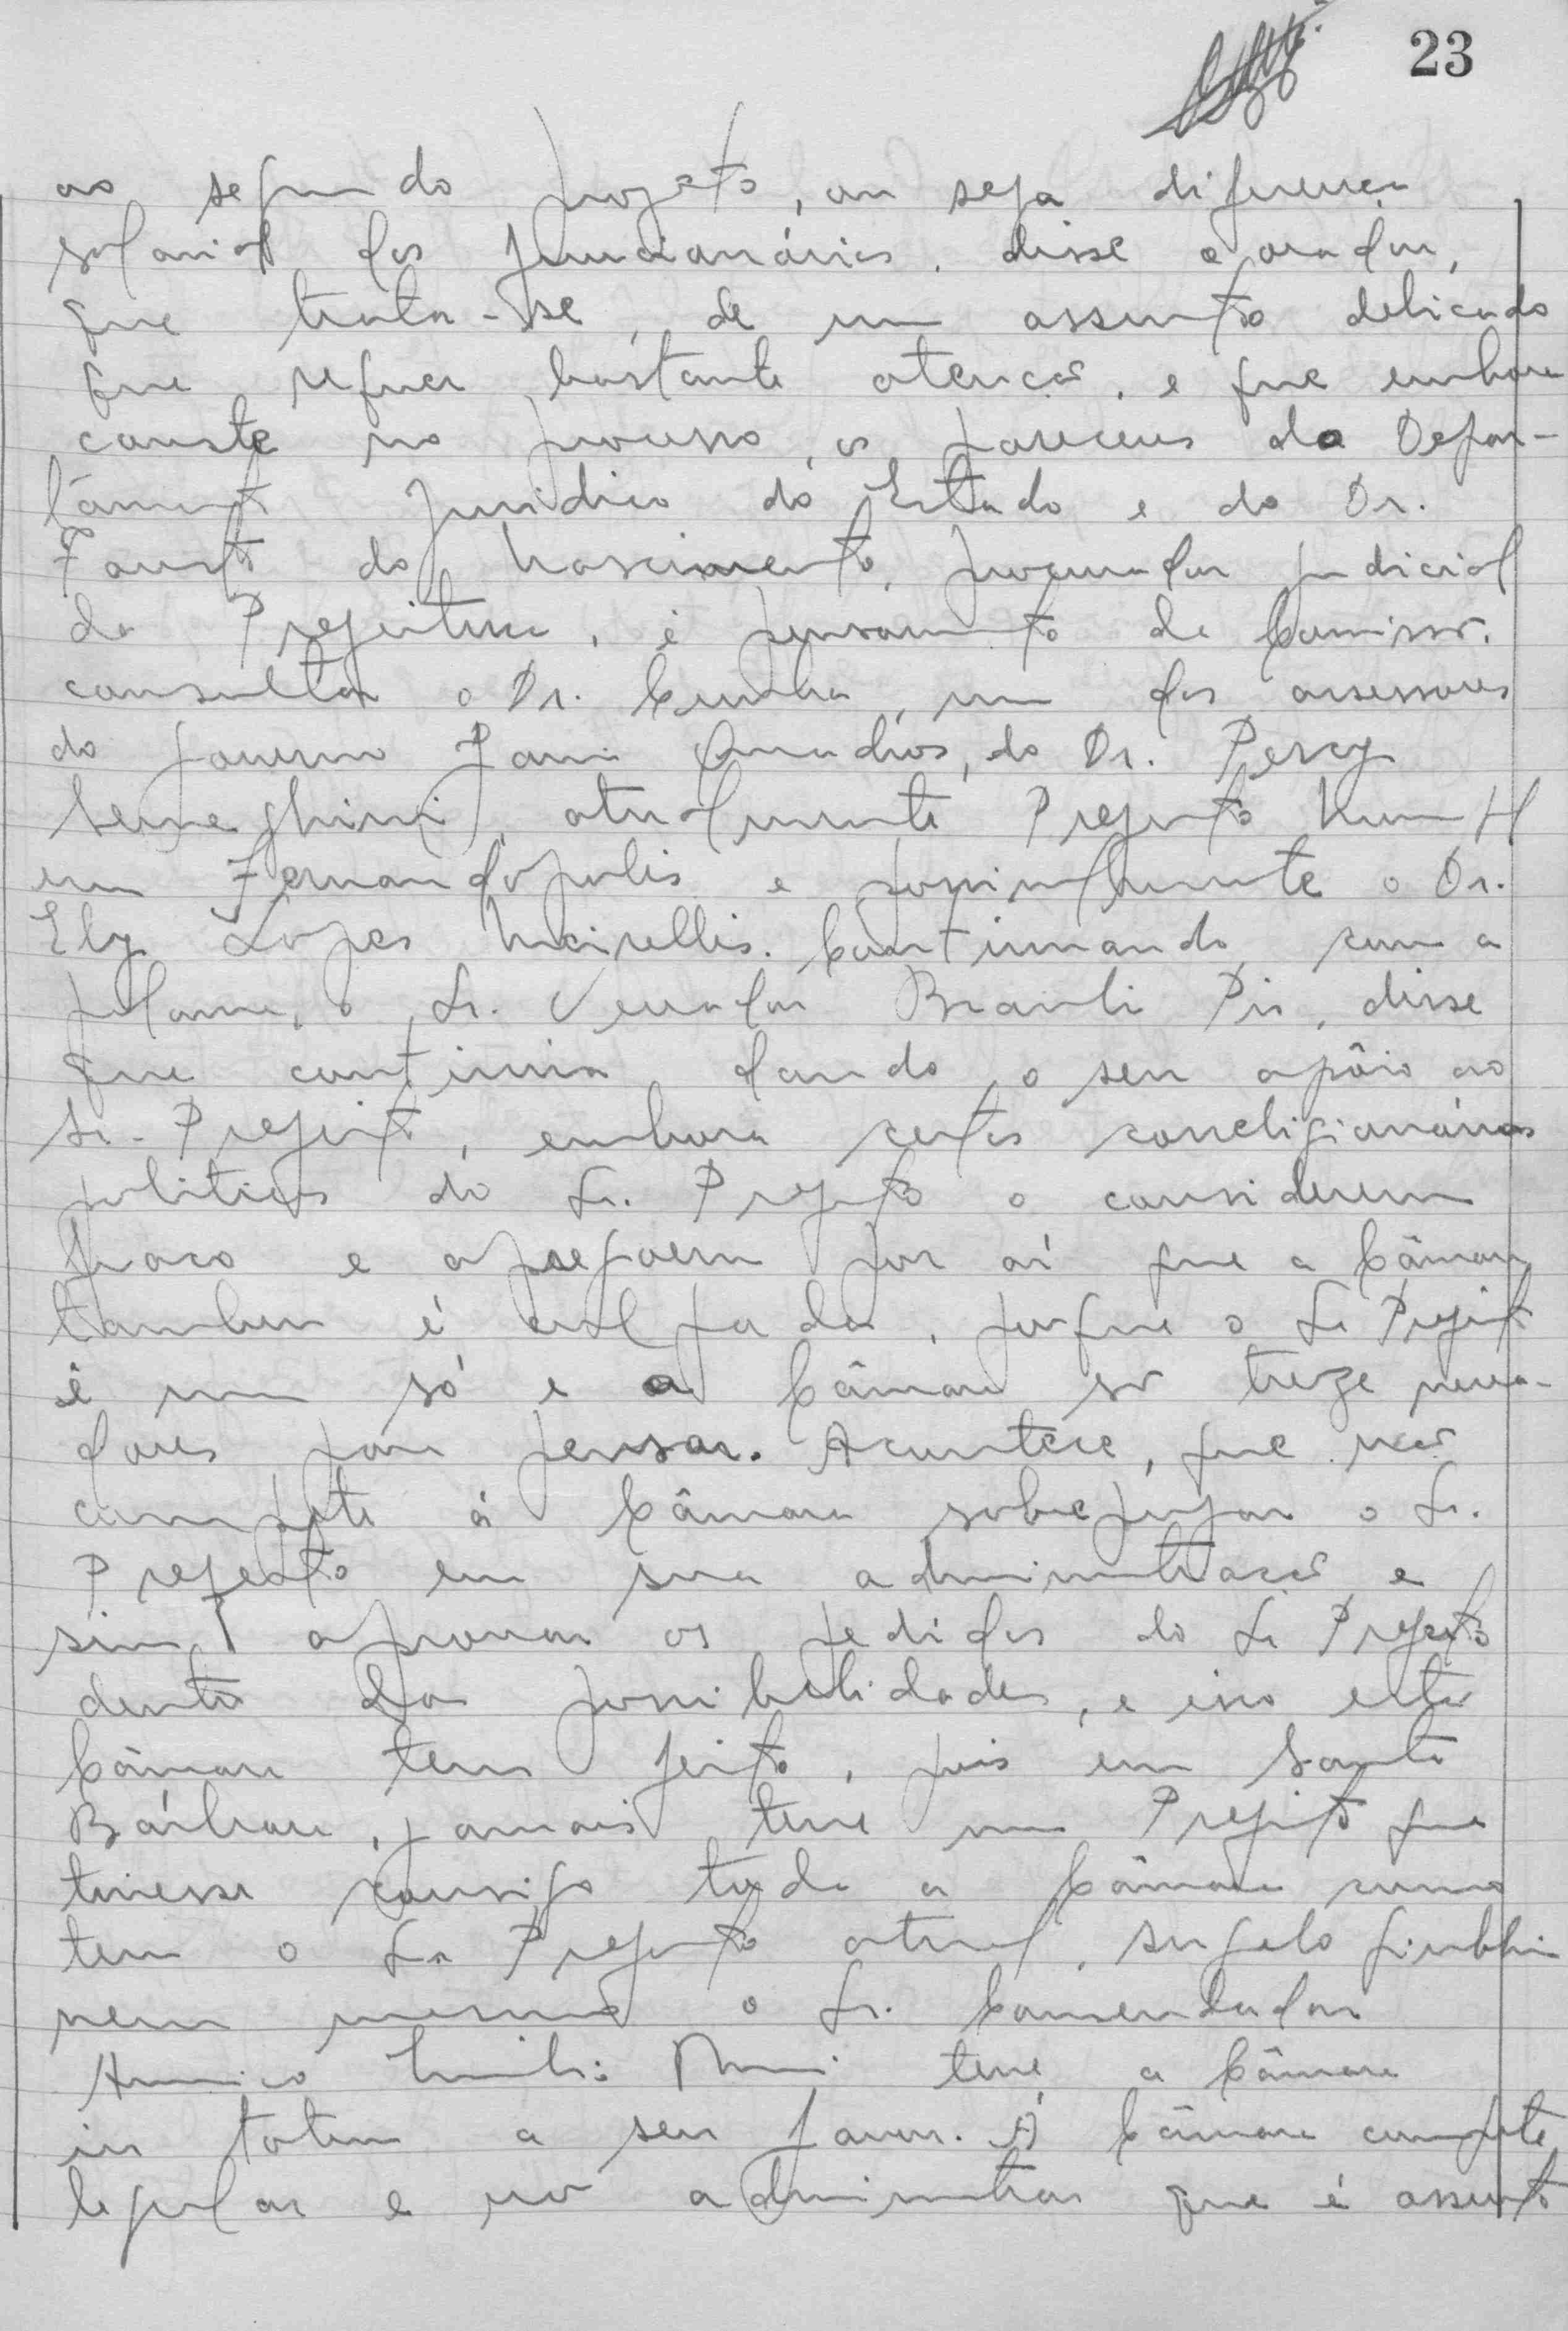 23
ao segundo projeto, ou seja diferença
salarial dos funcionários, disse o orador,
que trata-se, de um assunto delicado
que requer bastante atenção, e que embora
conste no processo, os pareceres do Depar-
tâmento Juridico do Estado e do Dr.
Fausto do Nascimento, procurador judicial
da Prefeitura, é pensamento da Comissão,
consultar o Dr. Cunha, um dos assessores
do governo Janio Quadros, do Dr. Percy
Semeghini, atualmente Prefeito
em Fernandópolis e possivelmente o Dr.
Ely Lopes Meirellis. Continuando com a
palavra, o Sr. Vereador Braulio Pio, disse
que continúa dando o seu apôio ao
Sr. Prefeito, embora certos correligionários
politicos do Sr. Prefeito o considerem
fraco e apregoem por aí que a Câmara
tambem é culpada, porque o Sr Prefeito
é um só e a Câmara são treze verea-
dores para pensar. Acontece, que não
compete á Câmara sobrepujar o Sr.
Prefeito em sua administração e
sim aprovar os pedidos do Sr Prefeito
dentro das possibilidades, e isso esta
Câmara tem feito, pois em Santa
Bárbara, jamais teve um Prefeito que
tivesse consigo toda a Câmara como
tem o Sr Prefeito atual, Angelo Giubbina
nem mesmo o Sr. Comendador
Americo Emilio Romi teve a Câmara
in totum a seu favor. Á Câmara compete
legislar e não administrar que é assunto